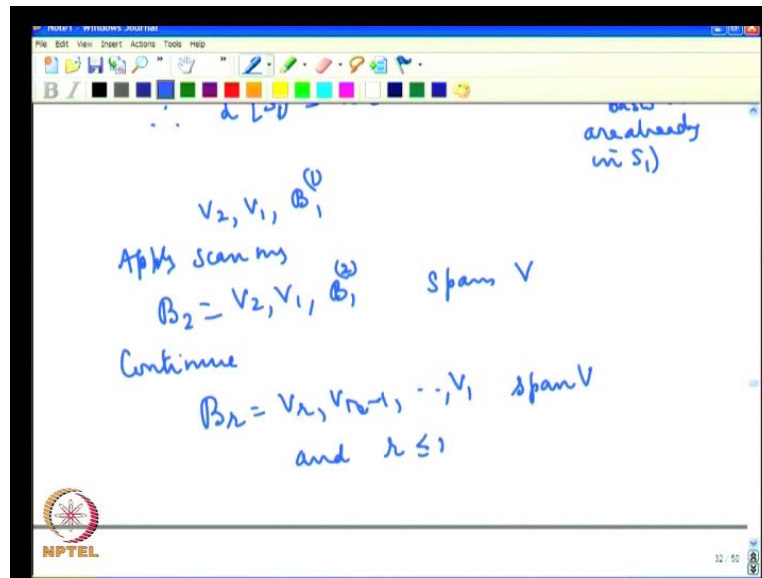 Note1 - Windows Journal
File Edit View Insert Actions Tools Help
B I
are already
in S₁)
V₂, V₁, B₁⁽¹⁾
Apply scanning
B₂ = V₂, V₁, B₁⁽²⁾ spans V
Continue
Bᵣ = Vᵣ, Vᵣ₋₁, ..., V₁ span V
and r ≤
NPTEL
32 / 50